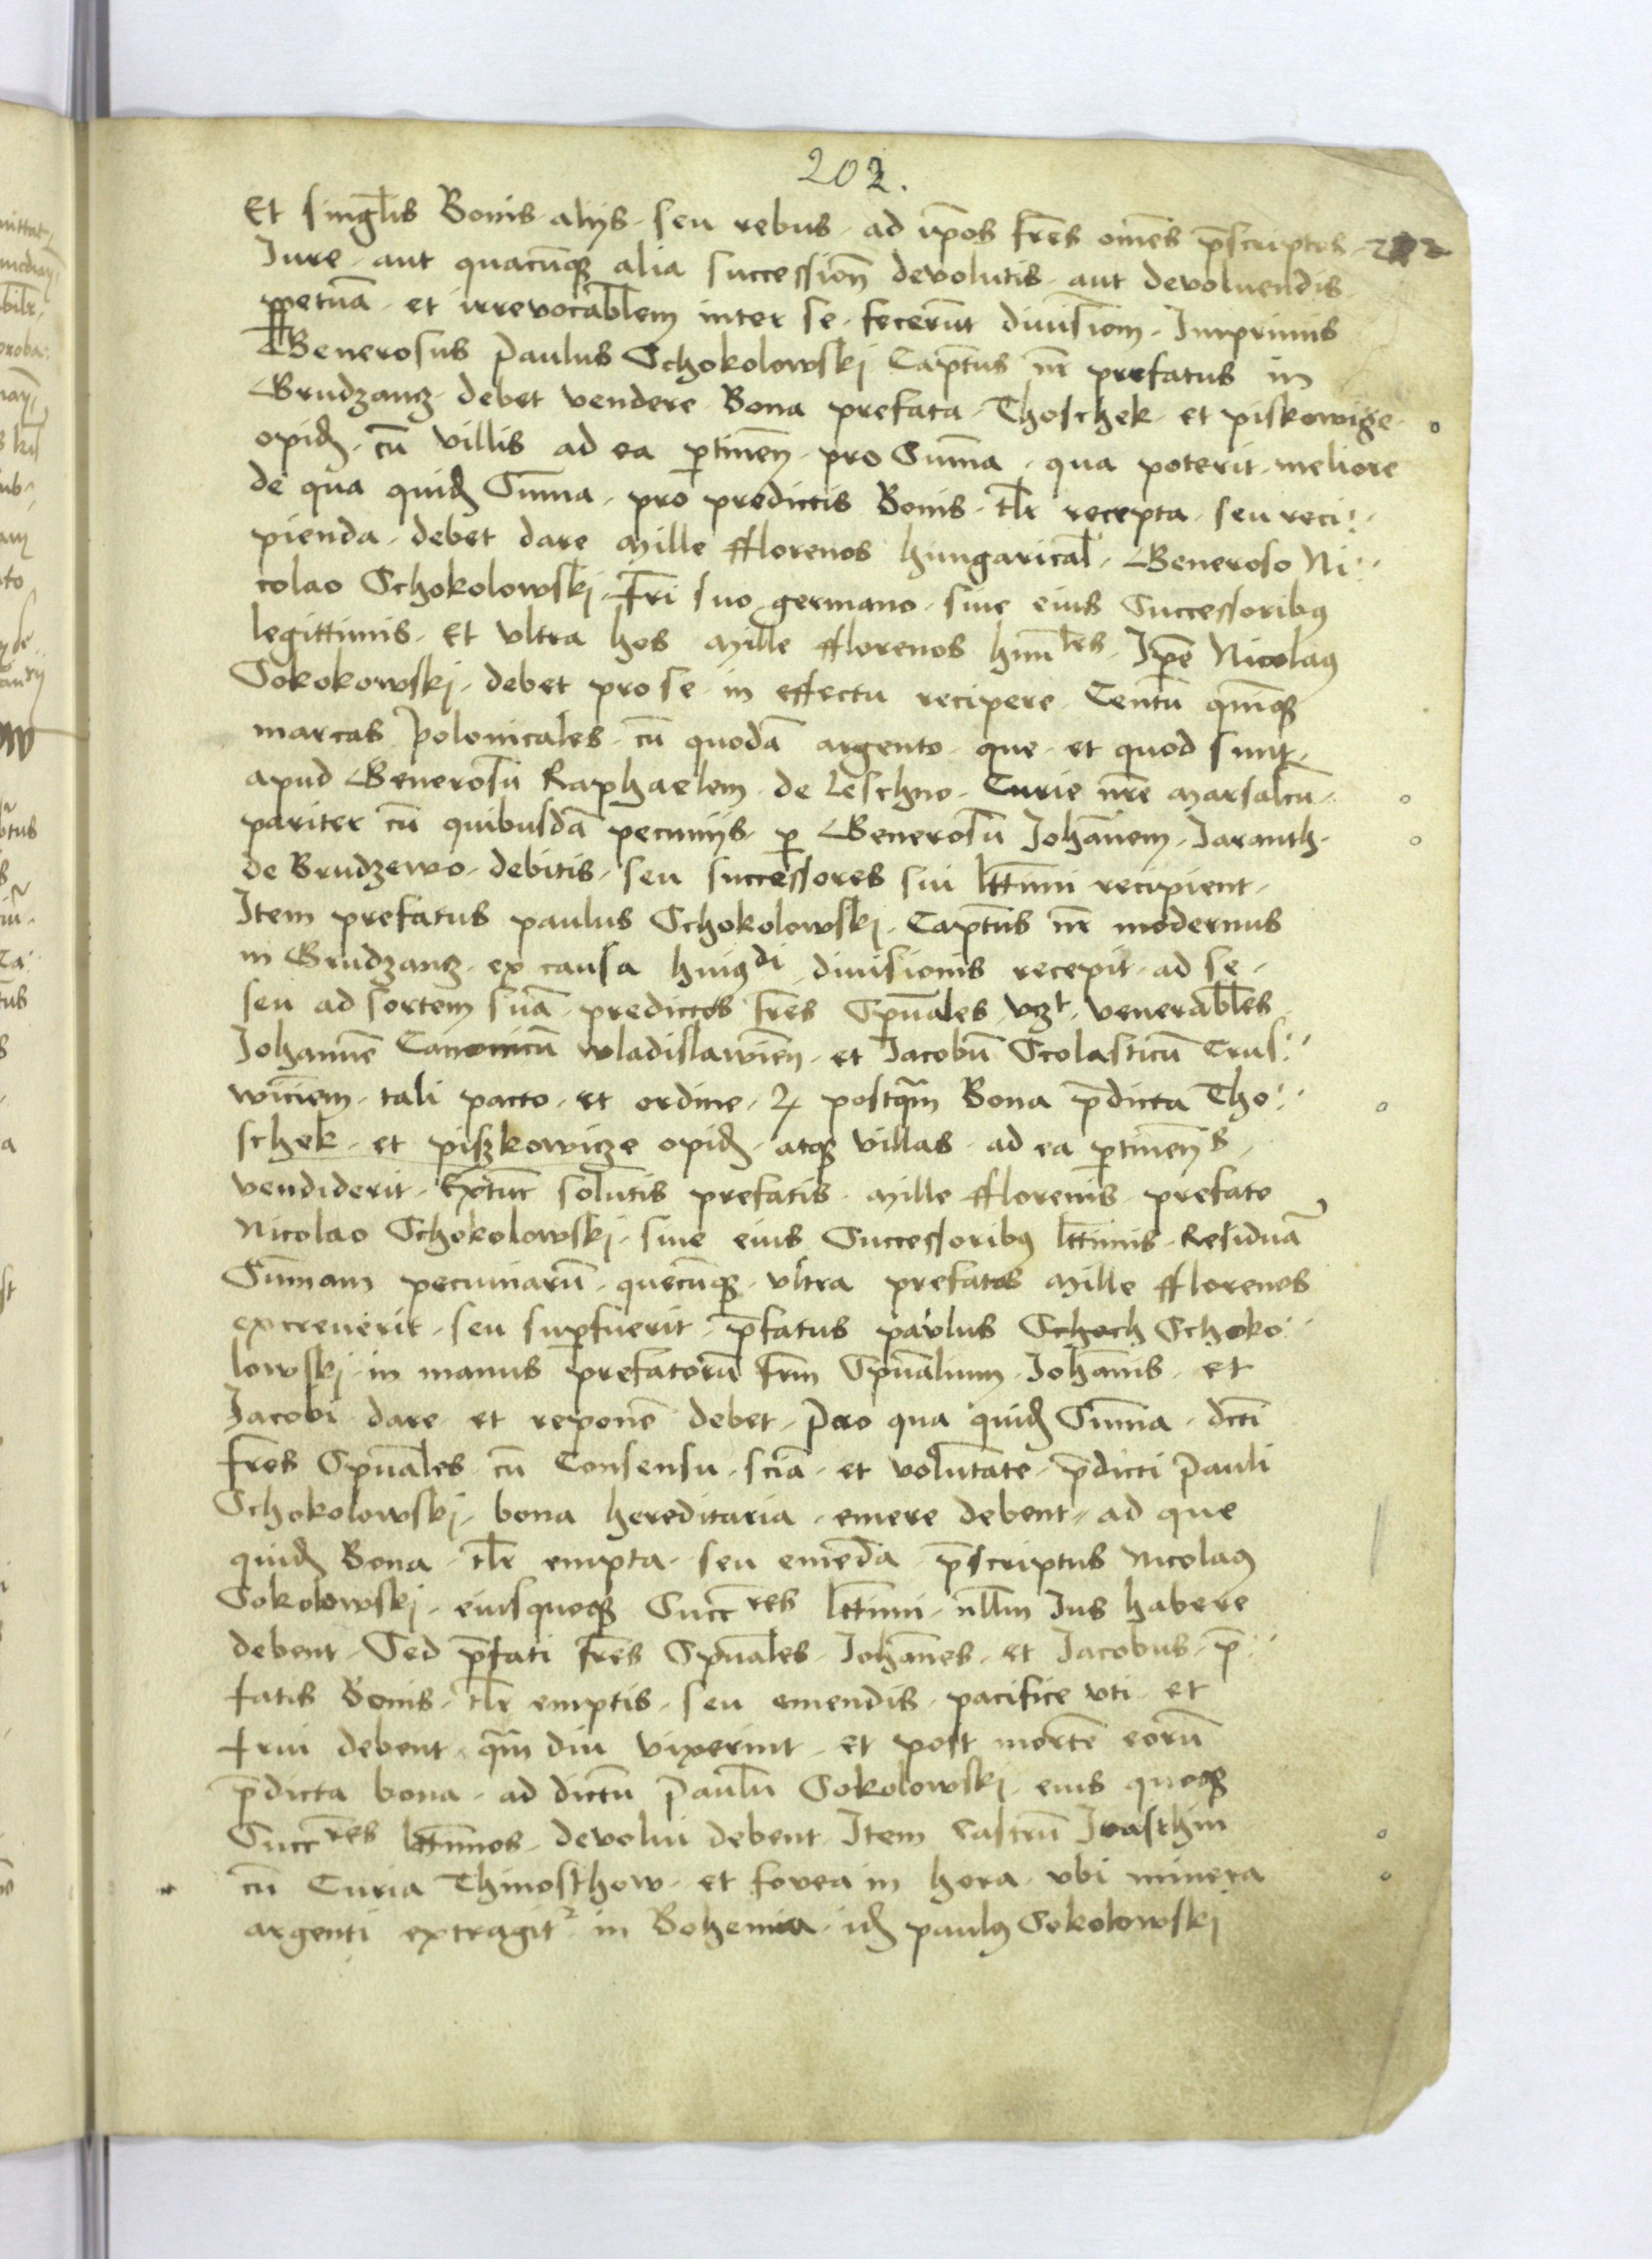 202.
Et singlis Bonis alijs seu rebus ad ip̄os fr̄es om̄es p̄scriptos 202
Iure aut quacūq3 alia successioñ devolutis aut devoluendis
ppetuā et irrevocablem inter se fecerūt diuisiōem Imprimis
Generosus Paulus Schokolowskj Capt̄us nr̄ prefatus in
Grudzanz debet vendere Bona prefata Thoschek et piskowiçe
opid̄ cū villis ad ea ptineñ pro Sum̄a qua poterit meliore
de qua quid̄ Sum̄a pro predictis Bonis tlr recepta seu reci:
pienda debet dare Mille fflorenos hungarical Generoso Ni:
colao Schokolowskj fr̄i suo germano siue eius Successorib9
legittimis Et vltra hos Mille fflorenos hun̄les Ip̄e Nicola9
Sokokowskj debet pro se in effectu recipere Centū quīq3
marcas Polonicales cū quodā argento que et quod sunt
apud Generosū Raphaelem de Leschno Curie nr̄e Marsalcū
pariter cū quibusdā pecunijs p Generosū Johānem Jaranth
de Brudzewo debitis seu successores sui lt̄timi recipient
Item prefatus paulus Schokolowskj Capt̄us nr̄ modernus
in Grudzanz ex causa hui9di diuisionis recepit ad se
seu ad sortem suā predictos fr̄es Sp̄uales vz̄t venerables
Johannē Canonicū wladislawieñ et Jacobū Scolasticū Crus:
wiciēm tali pacto et ordine 2 postq̄m Bona p̄dicta Tho:
schek et piszkowicze opid̄ atq3 villas ad ea ptineñs
vendiderit Extūc solutis prefatis Mille fflorenis prefato
Nicolao Schokolowskj siue eius Successorib9 lt̄timis Residuā
Sum̄am pecuniarū quecūq3 vltra prefatos Mille fflorenos
excreuerit seu supfuerit p̄fatus paulus Schoch Schoko:
lowskj in manus prefatorū fr̄m Sp̄ualium Johān̄is et
Jacobi dare et reponē debet Pro qua quid̄ Sum̄a dc̄ti
fr̄es Sp̄uales cū Consensu sciā et volūtate p̄dicti Pauli
Schokolowskj bona hereditaria emere debent ad que
quid̄ Bona tlr empta seu emēda p̄scriptus Nicola9
Sokolowskj eiusquoq3 Succ̄res lt̄timi nllm Ius habere
debent Sed p̄fati fr̄es Sp̄uales Johānes et Jacobus p̄:
fatis Bonis tlr emptis seu emendis pacifice vti et
frui debent q̄m diu vixerint et post mortē eorū
p̄dicta bona ad dictū Paulū Sokolowskj eius quoq3
Succ̄res lt̄timos devolui debent Item Castrū Jvasthin
cū Curia Thmosthow et fovea in hora vbi minera
argenti extragit2 in Bohemia id̄ paul9 Sokolowskj